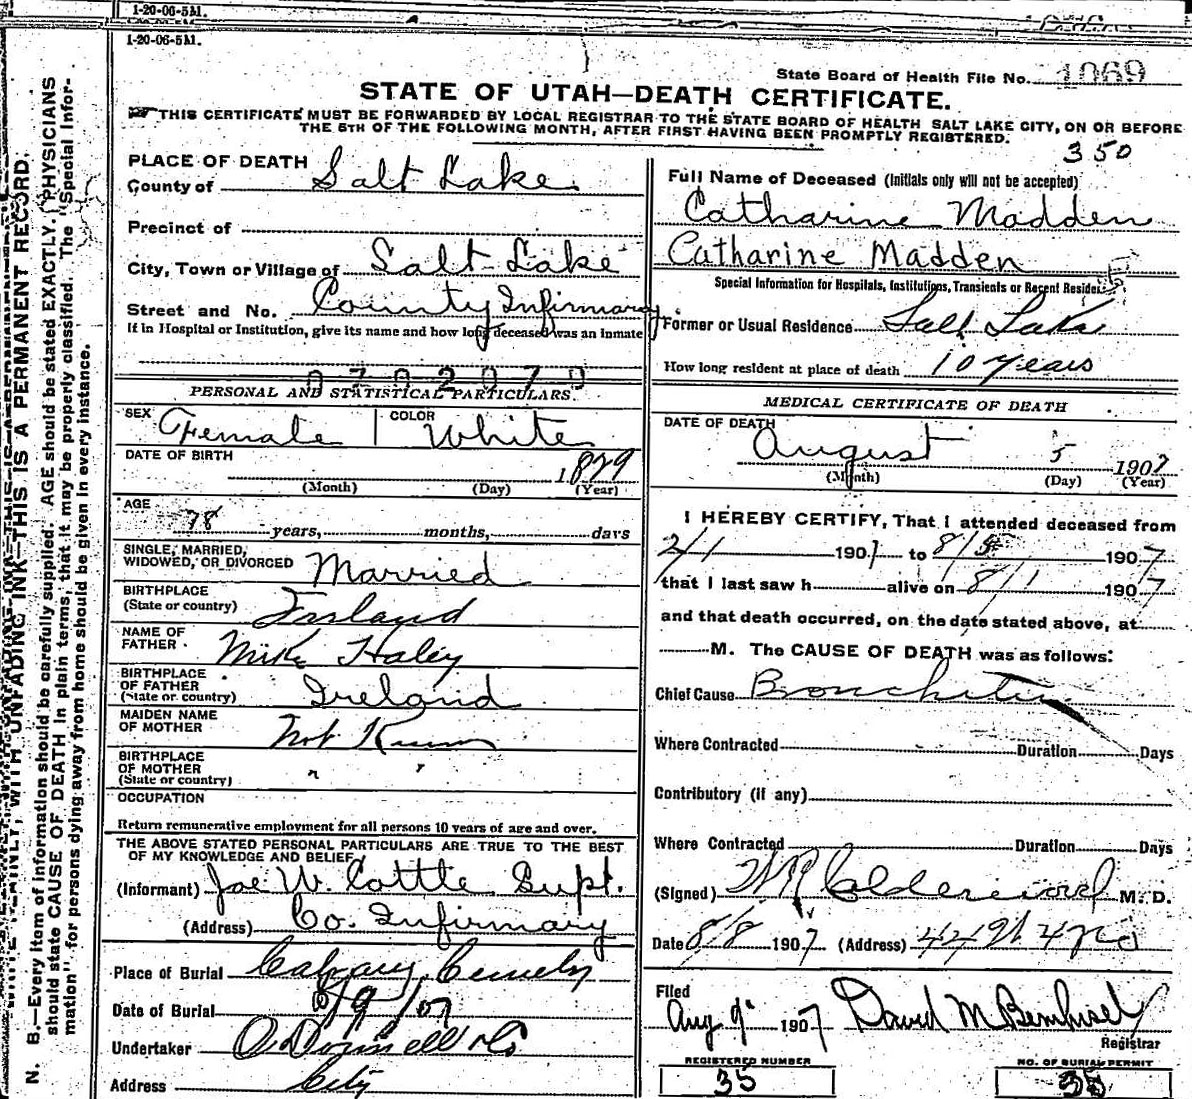 1-20-06-5M.
1-20-06-5M.
State Board of Health File No. 1069
STATE OF UTAH—DEATH CERTIFICATE.
THIS CERTIFICATE MUST BE FORWARDED BY LOCAL REGISTRAR TO THE STATE BOARD OF HEALTH SALT LAKE CITY, ON OR BEFORE
THE 5TH OF THE FOLLOWING MONTH, AFTER FIRST HAVING BEEN PROMPTLY REGISTERED.
350
N. B.—Every item of information should be carefully supplied. AGE should be stated EXACTLY. PHYSICIANS
should state CAUSE OF DEATH in plain terms, that it may be properly classified. The "Special Infor-
mation" for persons dying away from home should be given in every instance.
WITH UNFADING INK—THIS IS A PERMANENT RECORD.
PLACE OF DEATH
County of Salt Lake
Precinct of
City, Town or Village of Salt Lake
Street and No. County Infirmary
If in Hospital or Institution, give its name and how long deceased was an inmate
0702070
PERSONAL AND STATISTICAL PARTICULARS.
SEX Female COLOR White
DATE OF BIRTH 1829
(Month) (Day) (Year)
AGE
78 years, months, days
SINGLE, MARRIED,
WIDOWED, OR DIVORCED Married
BIRTHPLACE
(State or country) Ireland
NAME OF
FATHER Mike Haley
BIRTHPLACE
OF FATHER
(State or country) Ireland
MAIDEN NAME
OF MOTHER Not Known
BIRTHPLACE
OF MOTHER
(State or country) " "
OCCUPATION
Return remunerative employment for all persons 10 years of age and over.
THE ABOVE STATED PERSONAL PARTICULARS ARE TRUE TO THE BEST
OF MY KNOWLEDGE AND BELIEF
(Informant) Joe W. Cottle Supt.
(Address) Co. Infirmary
Place of Burial Calvary Cemetery
Date of Burial 8/9/07
Undertaker O'Donnell & Co
Address City
Full Name of Deceased (Initials only will not be accepted)
Catharine Madden
Catharine Madden
Special Information for Hospitals, Institutions, Transients or Recent Residents
Former or Usual Residence Salt Lake
How long resident at place of death 10 years
MEDICAL CERTIFICATE OF DEATH
DATE OF DEATH
August 5 1907
(Month) (Day) (Year)
I HEREBY CERTIFY, That I attended deceased from
2/1 1907 to 8/5 1907
that I last saw h alive on 8/1 1907
and that death occurred, on the date stated above, at
M. The CAUSE OF DEATH was as follows:
Chief Cause Bronchitis
Where Contracted Duration Days
Contributory (if any)
Where Contracted Duration Days
(Signed) Calderwood M. D.
Date 8/8 1907 (Address)
Filed
Aug 9 1907 David M Bernhisel
Registrar
REGISTERED NUMBER
35
NO. OF BURIAL PERMIT
35